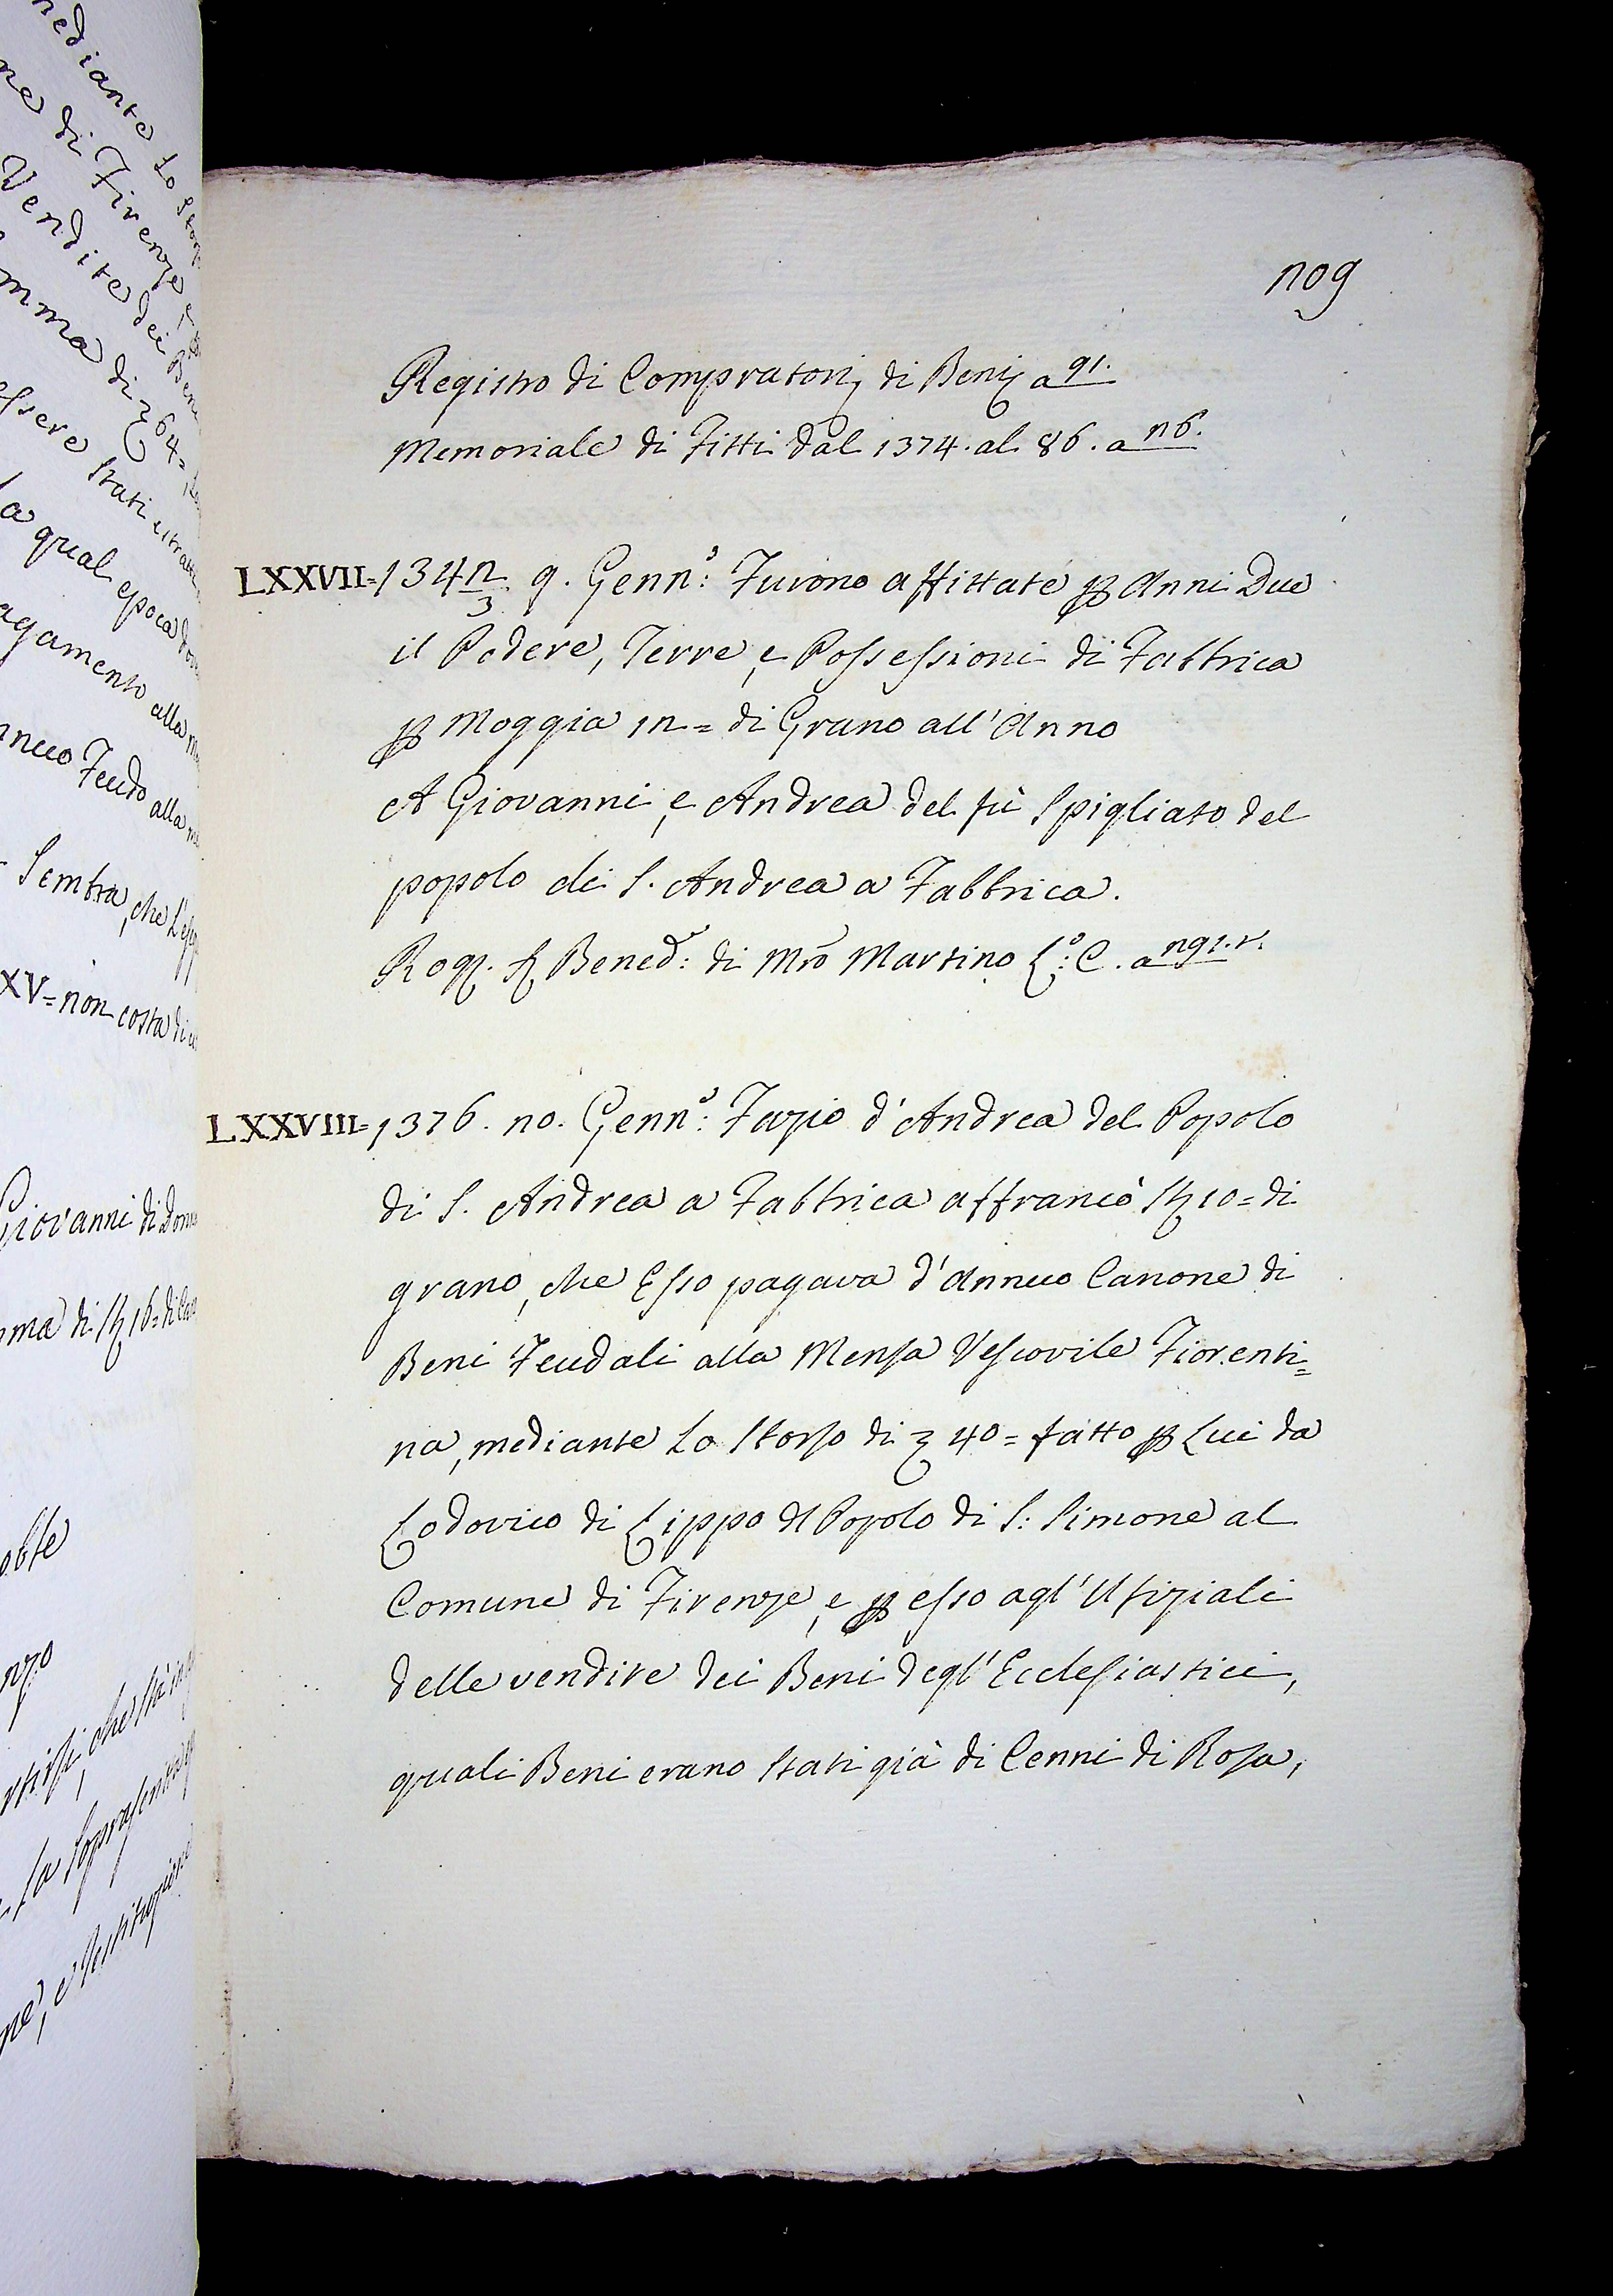 mediante Lo
ne di Firenze
Vendite dei Beni
mma di 64=
essere Stati
La qual epoca
agamento alla
nnuo Feudo alla
Sembra, che
XV= non costa di
Giovanni di
ma di 16=
La
209
Registro di Compratorj di Benj a 91.
Memoriale di Fitti dal 1374. al 86. a 26.
LXXVII= 1342/3 9. Genn:º Furono affittate p Anni Due
il Podere, Terre, e Possessioni di Fabbrica
p Moggia 12= di Grano all'Anno
A Giovanni, e Andrea del fù Spigliato del
popolo di S. Andrea a Fabbrica.
Rog. Bened:º di Mrõ Martino L:º C. a 291.
LXXVIII= 1376. 20. Genn:º Fazio d'Andrea del Popolo
di S. Andrea a Fabbrica affrancò St 10= di
grano, che Esso pagava d'Annuo Canone di
Beni Feudali alla Mensa Vescovile Fiorenti=
na, mediante Lo Storso di 40= fatto p Lui da
Lodovico di Lippo dl Popolo di S: Simone al
Comune di Firenze, e p esso agl'Ufiziali
delle vendite dei Beni degl'Ecclesiastici,
quali Beni erano Stati già di Cenni di Rosa,